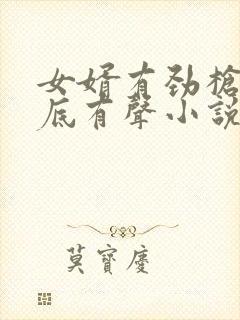 女婿有劲槍
底有聲小説
莫寶慶